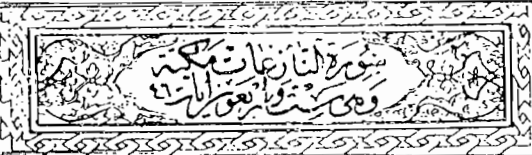 سُورَةُ النَّازِعَاتِ مَكِّيَّة
وَهِيَ سِتٌّ وَأَرْبَعُونَ آيَات ٤٦